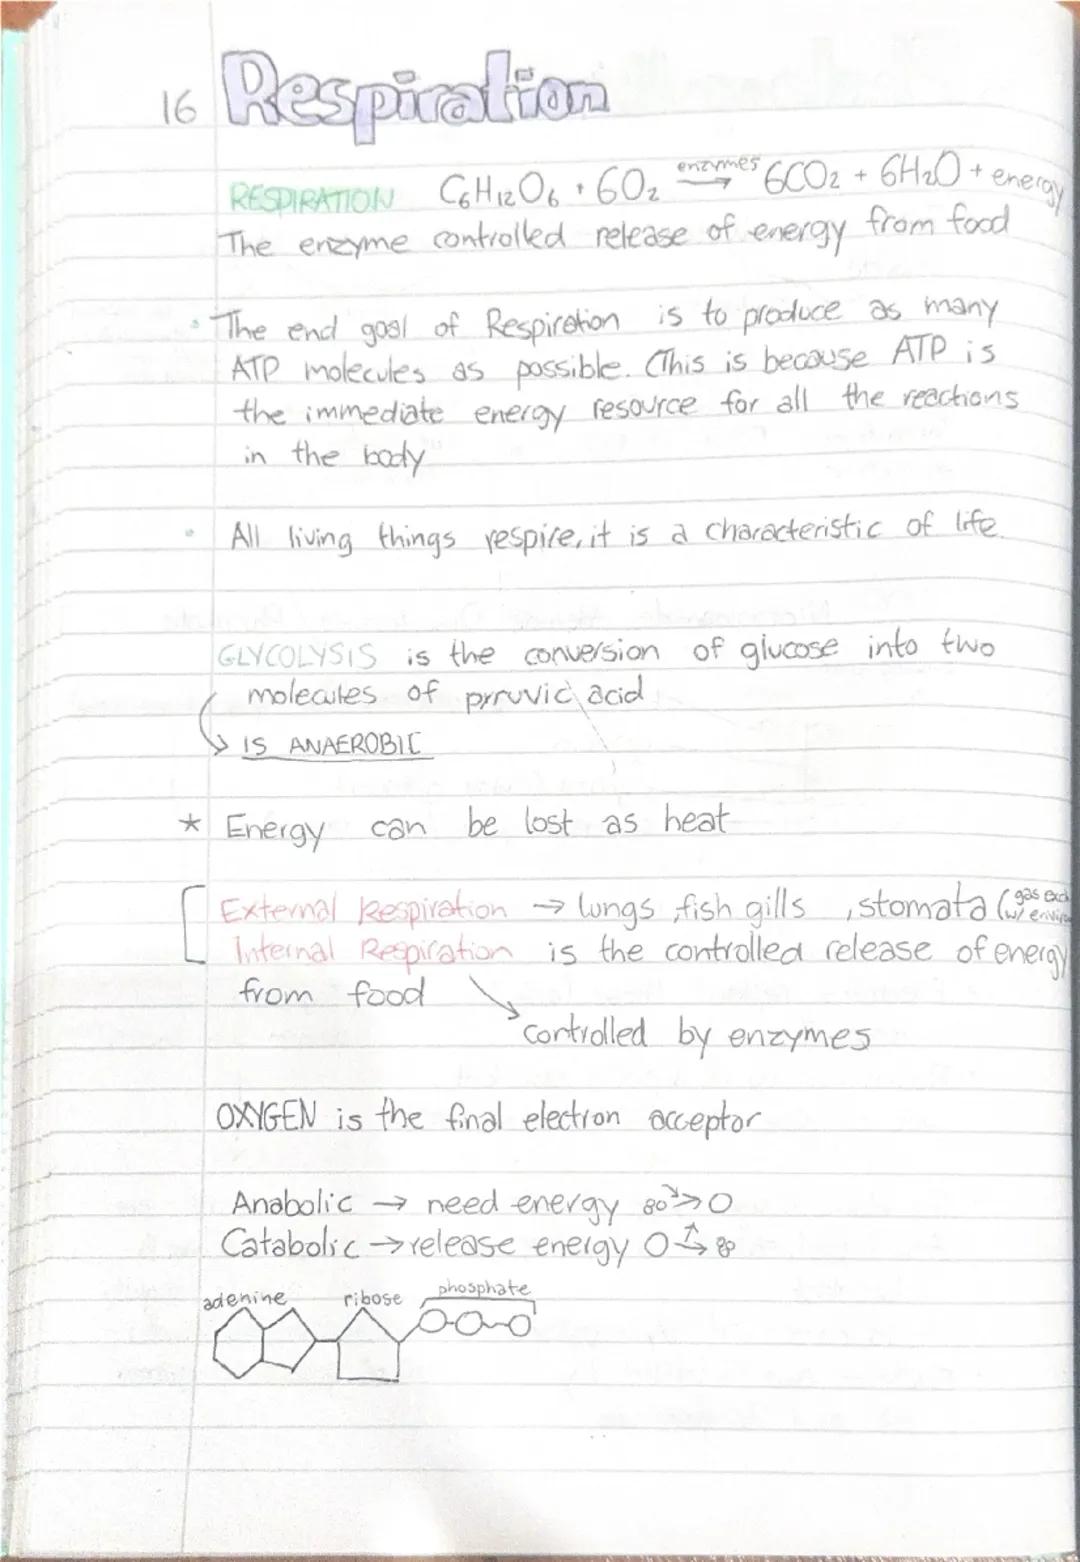 16 Respiration
RESPIRATION C6H12O6 + 6O2 enzymes → 6CO2 + 6H2O + energy
The enzyme controlled release of energy from food
• The end goal of Respiration is to produce as many
ATP molecules as possible. (This is because ATP is
the immediate energy resource for all the reactions
in the body
• All living things respire, it is a characteristic of life.
GLYCOLYSIS is the conversion of glucose into two
molecules of pyruvic acid
↳ IS ANAEROBIC
* Energy can be lost as heat
External Respiration → lungs, fish gills, stomata (gas
w/
Internal Respiration is the controlled release of energy
from food
controlled by enzymes
OXYGEN is the final electron acceptor
Anabolic → need energy
Catabolic → release energy
adenine ribose phosphate